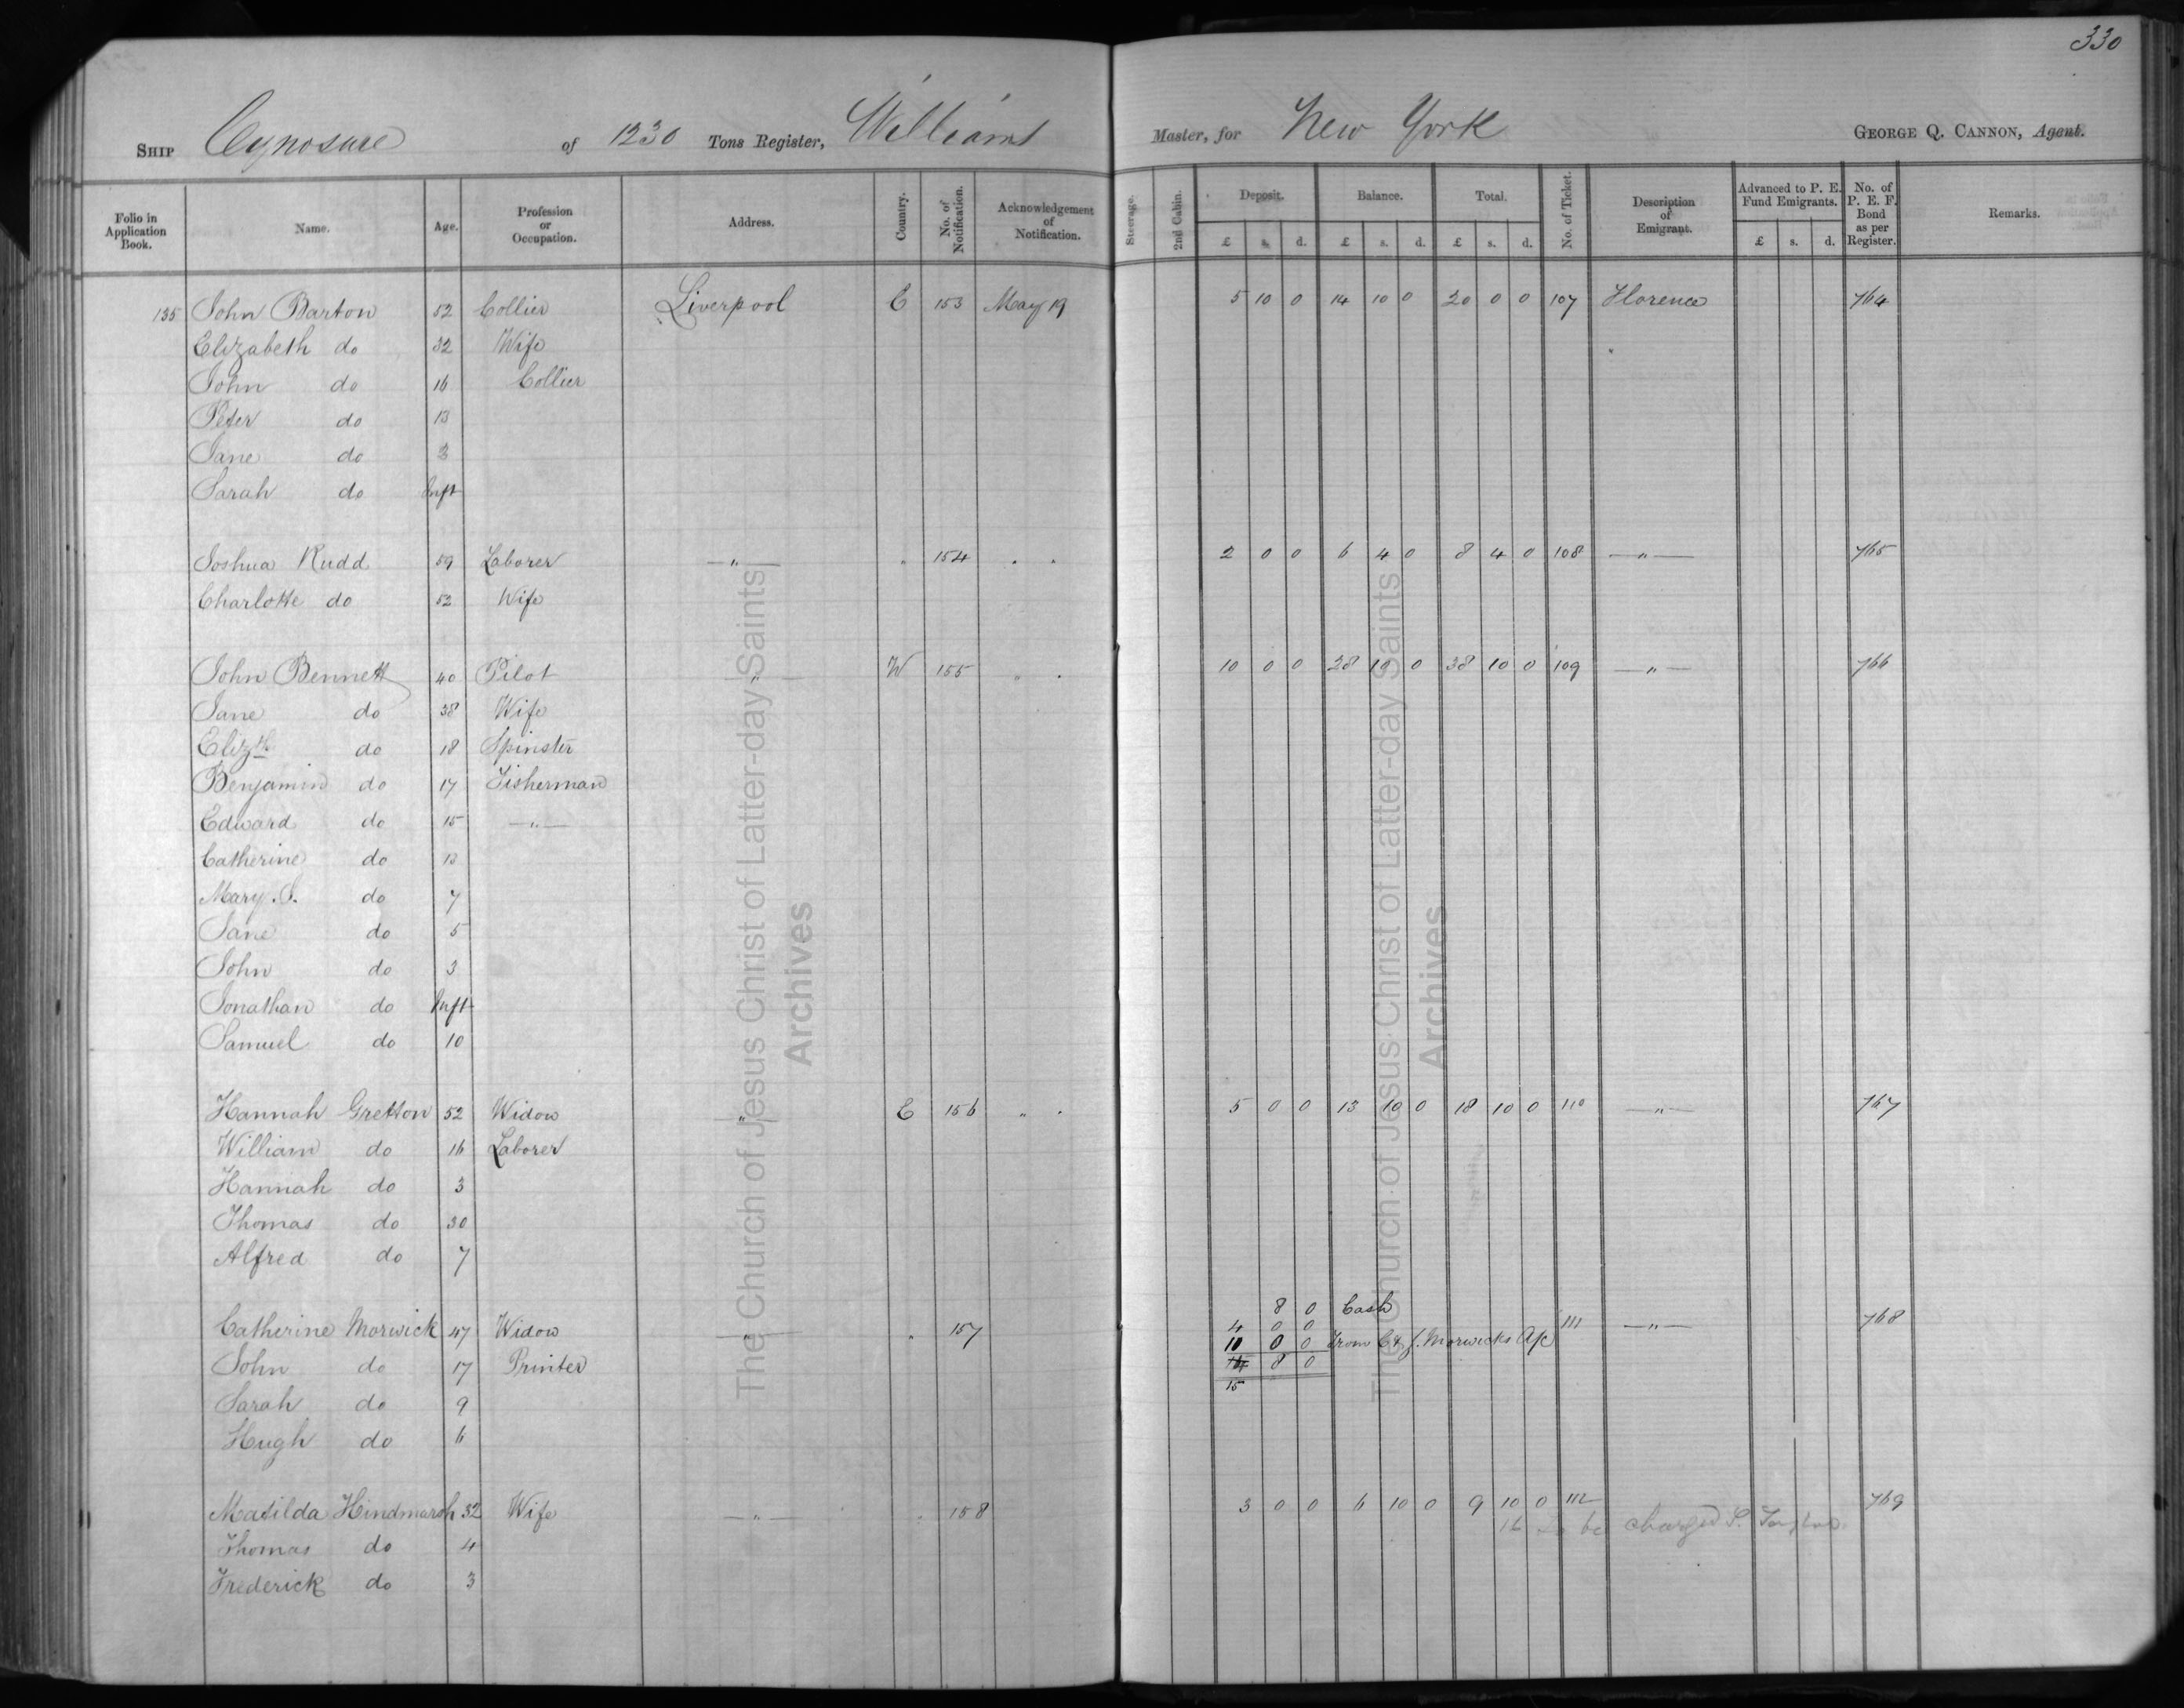 330
SHIP Cynosure of 1230 Tons Register, Williams Master, for New York GEORGE Q. CANNON, Agent.
Folio in Application Book. Name. Age. Profession or Occupation. Address. Country. No. of Notification. Acknowledgement of Notification. Steerage. 2nd Cabin. Deposit. Balance. Total. No. of Ticket. Description of Emigrant. Advanced to P. E. Fund Emigrants. No. of P. E. F. Bond as per Register. Remarks.
£ s. d. £ s. d. £ s. d. £ s. d.
135 John Barton 52 Collier Liverpool E 153 May 19 5 10 0 14 10 0 20 0 0 107 Florence 764
Elizabeth do 32 Wife
John do 16 Collier
Peter do 13
Jane do 3
Sarah do Inft
Joshua Rudd 59 Laborer " " 154 " " 2 0 0 6 4 0 8 4 0 108 " 765
Charlotte do 52 Wife
John Bennett 40 Pilot " W 155 " " 10 0 0 28 10 0 38 10 0 109 " 766
Jane do 38 Wife
Elizth do 18 Spinster
Benjamin do 17 Fisherman
Edward do 15 "
Catherine do 13
Mary. S. do 7
Jane do 5
John do 3
Jonathan do Inft
Samuel do 10
Hannah Gretton 52 Widow " E 156 " " 5 0 0 13 10 0 18 10 0 110 " 767
William do 16 Laborer
Hannah do 3
Thomas do 30
Alfred do 7
8 0 Cash
Catherine Morwick 47 Widow " " 157 4 0 0 111 " 768
10 0 0 From C & J. Morwicks A/c
John do 17 Printer 14 8 0
15
Sarah do 9
Hugh do 6
Matilda Hindmarsh 32 Wife " " 158 3 0 0 6 10 0 9 10 0 112 769
to be charged P. Taylor
Thomas do 4
Frederick do 3
The Church of Jesus Christ of Latter-day Saints
Archives
The Church of Jesus Christ of Latter-day Saints
Archives